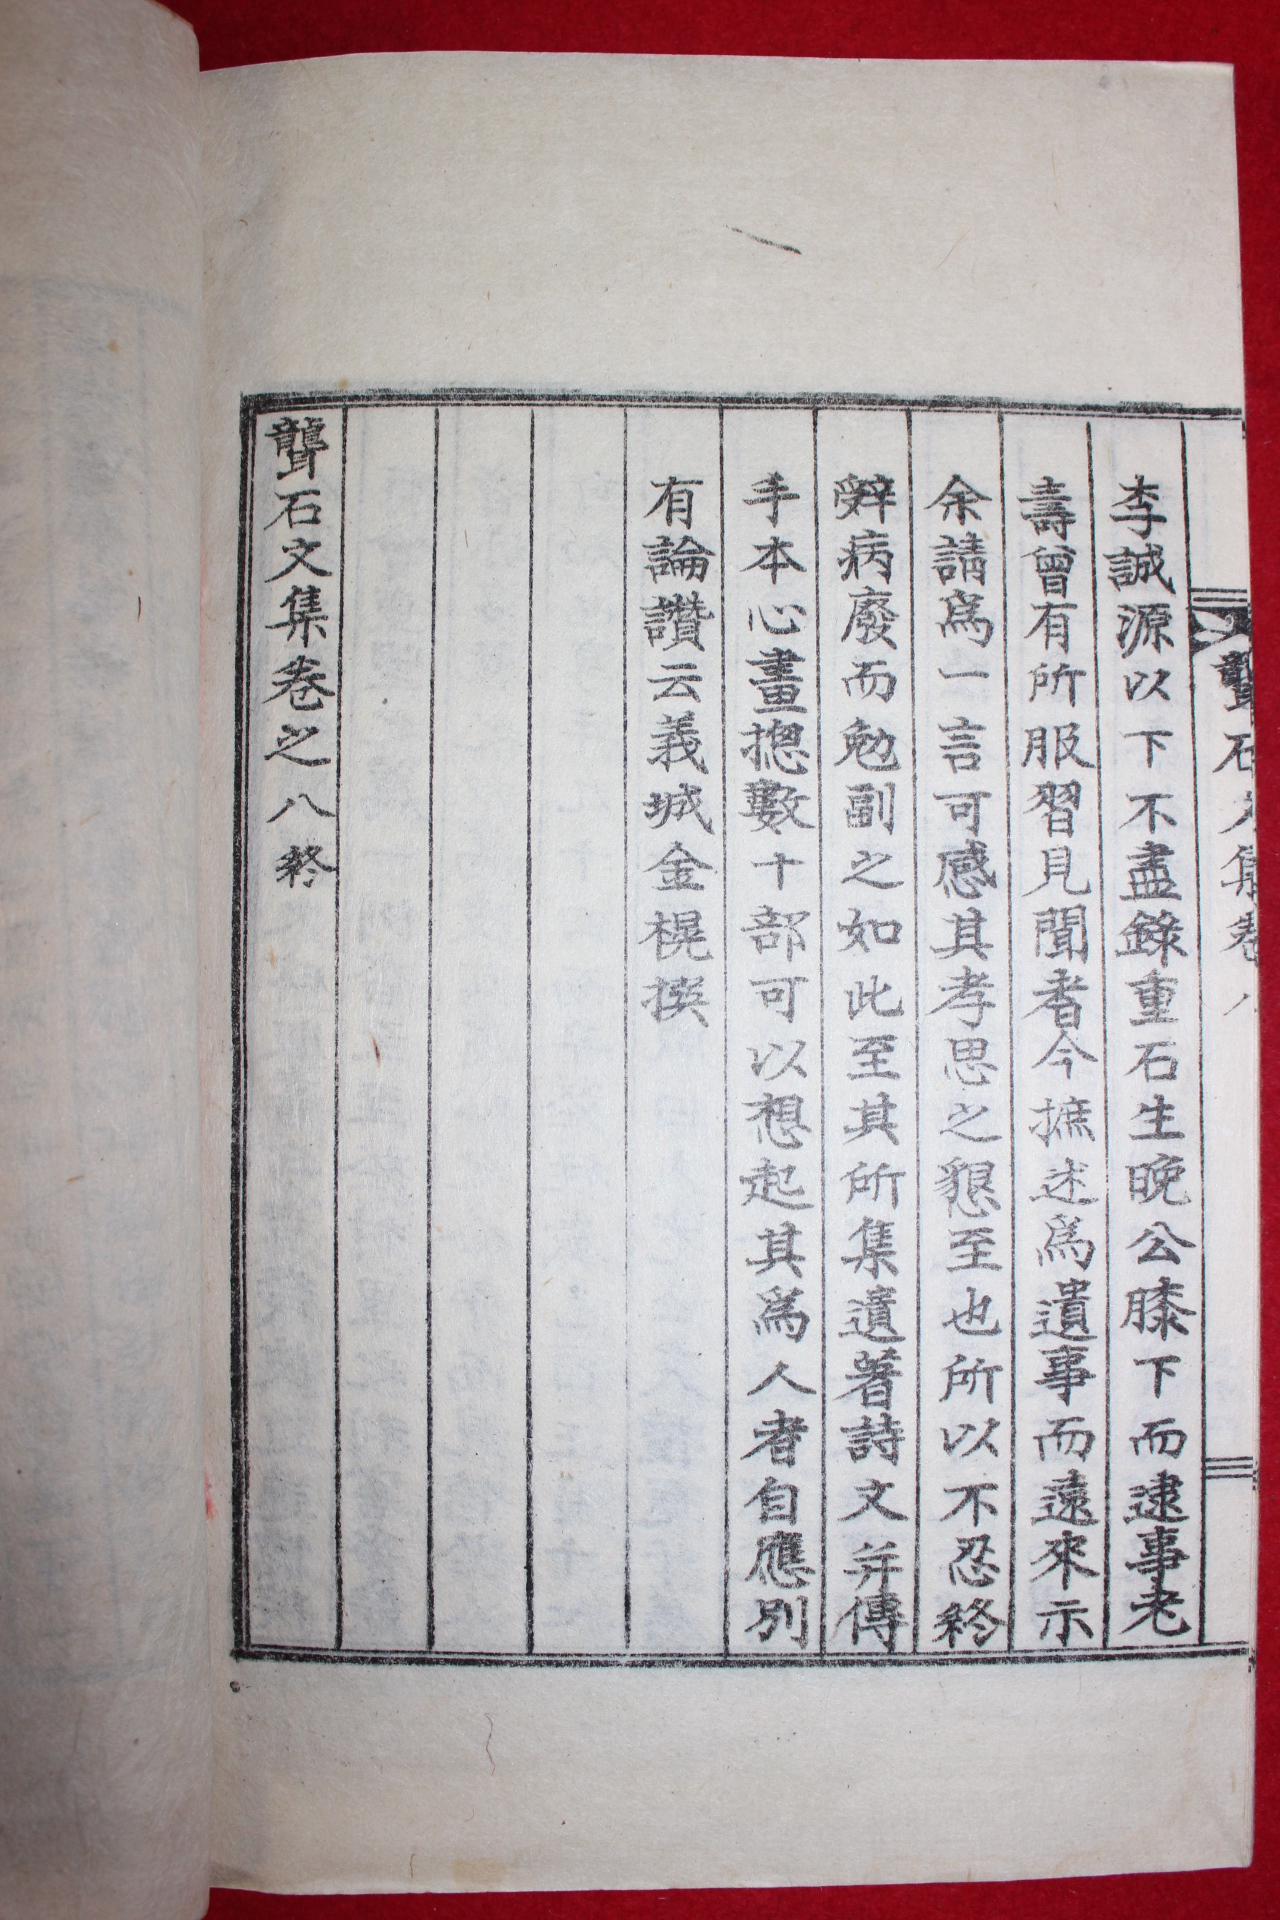 聾石文集卷 八
李誠源以下不盡錄重石生晚公膝下而逮事老
壽曾有所服習見聞者今摭述爲遺事而遠來示
余請爲一言可感其孝思之懇至也所以不忍終
辭病廢而勉副之如此至其所集遺著詩文并傳
手本心畫摠數十部可以想起其爲人者自應別
有論讚云義城金榥撰
聾石文集卷之八 終